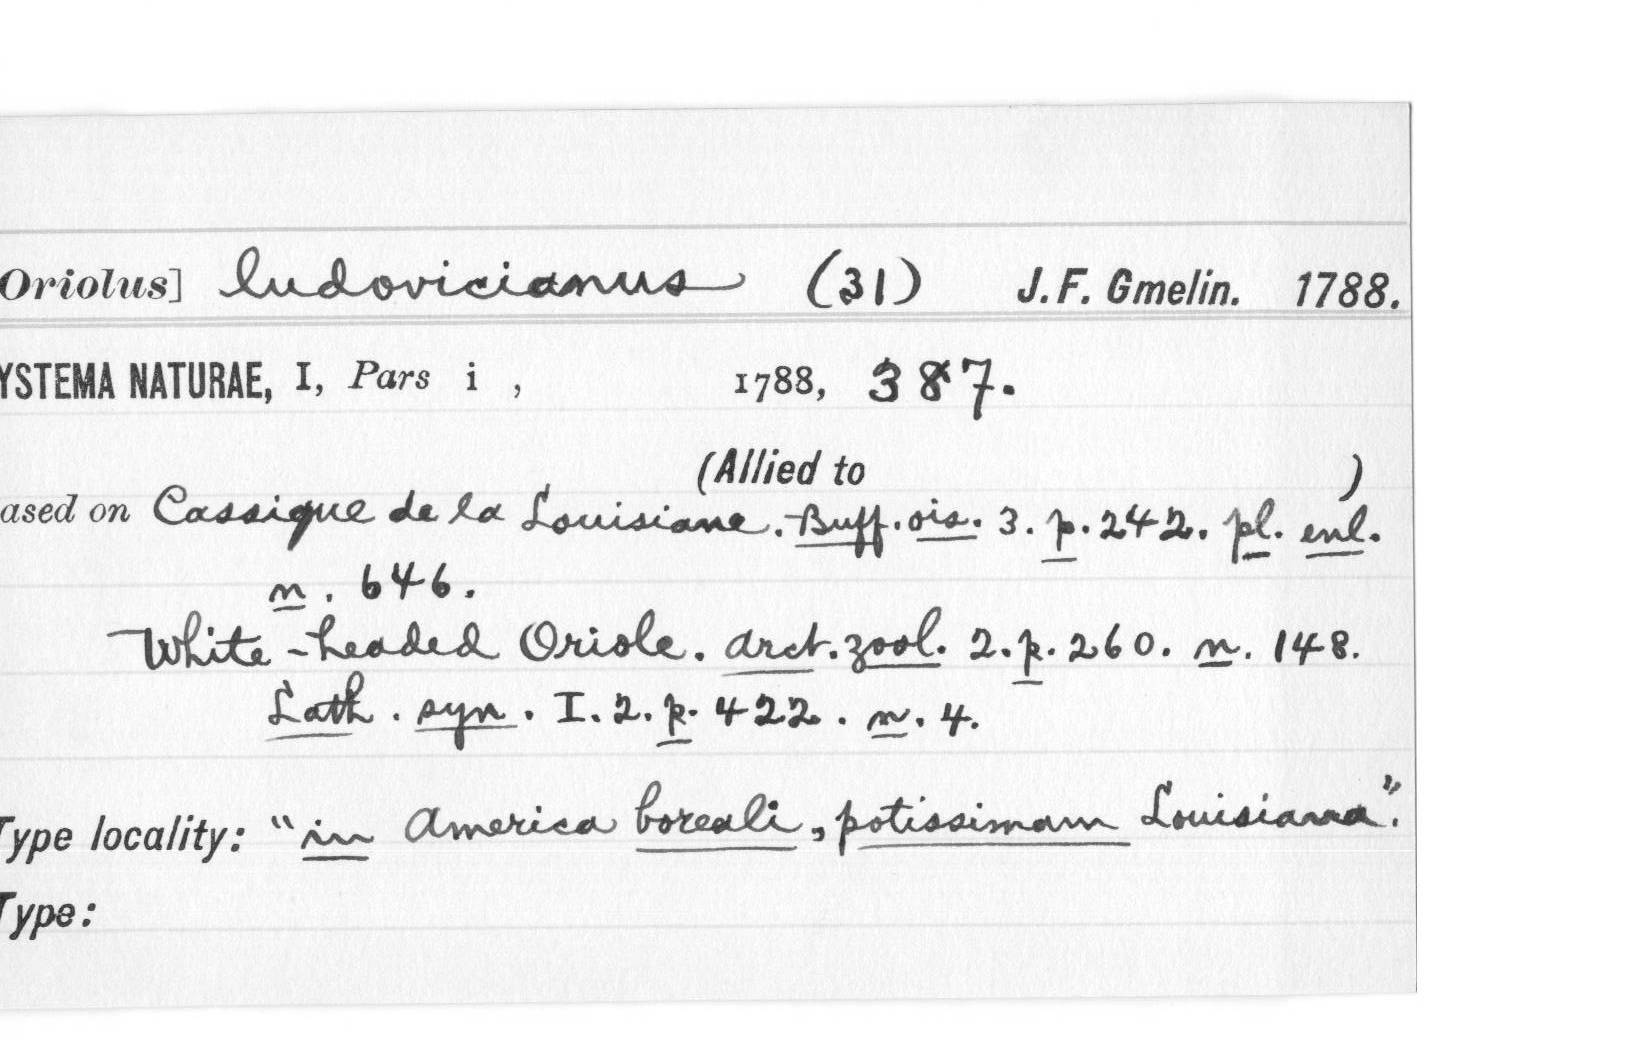 Oriolus] ludovicianus (31) J. F. Gmelin. 1788.
YSTEMA NATURAE, I, Pars i , 1788, 387.
(Allied to )
ased on Cassique de la Louisiane. Buff. ois. 3. p. 242. pl. enl.
n. 646.
White-headed Oriole. arct. zool. 2. p. 260. n. 148.
Lath. syn. I. 2. p. 422. n. 4.
Type locality: "in America boreali, potissimam Louisiana".
Type: